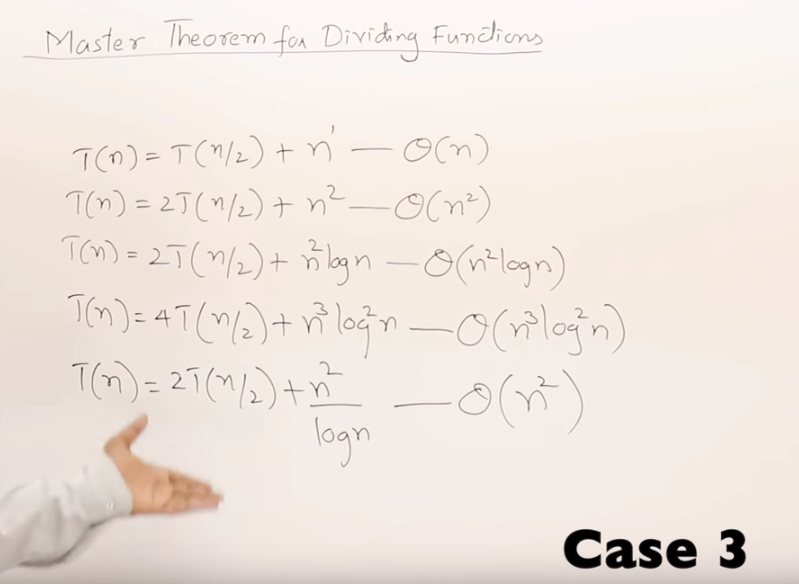 Master Theorem for Dividing Functions
T(n) = T(n/2) + n¹ — O(n)
T(n) = 2T(n/2) + n² — O(n²)
T(n) = 2T(n/2) + n² log n — O(n² log n)
T(n) = 4T(n/2) + n³ log² n — O(n³ log² n)
T(n) = 2T(n/2) + n²/log n — O(n²)
Case 3